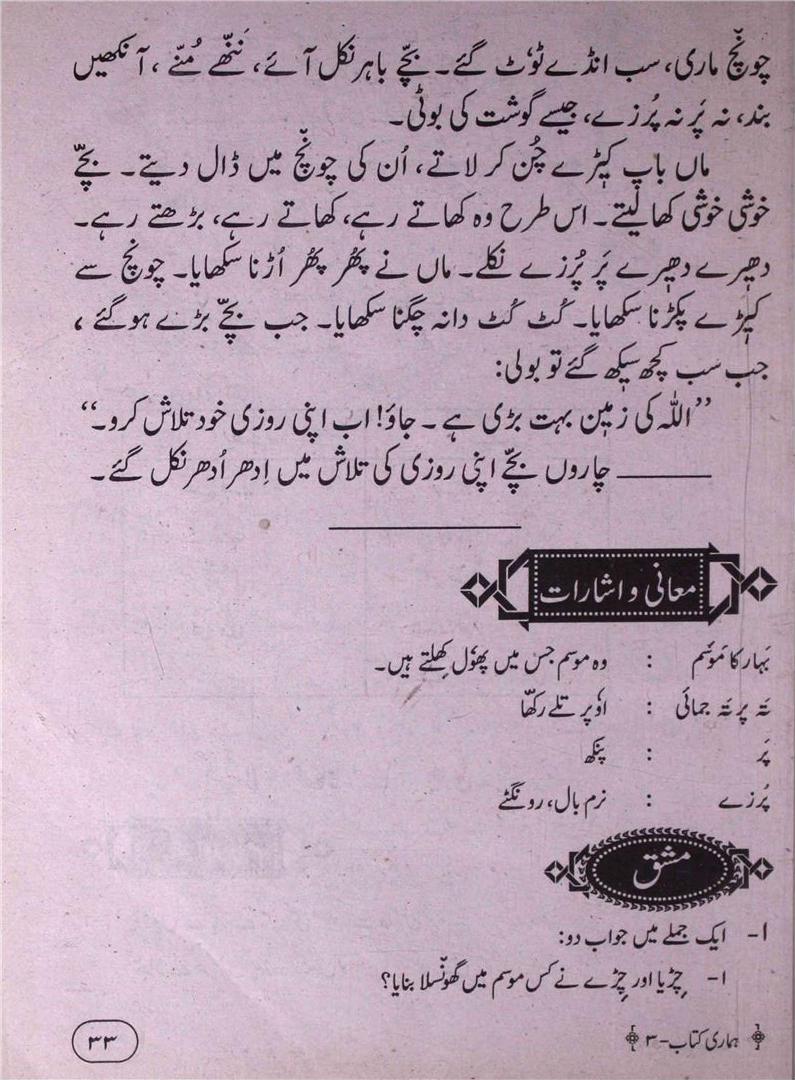 چونچ ماری، سب انڈے ٹوٗٹ گئے۔ بچّے باہر نکل آئے، ننّھے مُنّے، آنکھیں
بند، نہ پَر نہ پُرزے، جیسے گوشت کی بوٹی۔
ماں باپ کیڑے چُن کر لاتے، اُن کی چونچ میں ڈال دیتے۔ بچّے
خوشی خوشی کھا لیتے۔ اس طرح وہ کھاتے رہے، کھاتے رہے، بڑھتے رہے۔
دھیرے دھیرے پَر پُرزے نکلے۔ ماں نے پھُر پھُر اُڑنا سکھایا۔ چونچ سے
کیڑے پکڑنا سکھایا۔ کُٹ کُٹ دانہ چگنا سکھایا۔ جب بچّے بڑے ہو گئے،
جب سب کچھ سیکھ گئے تو بولی:
”اللہ کی زمین بہت بڑی ہے۔ جاؤ! اب اپنی روزی خود تلاش کرو۔“
——— چاروں بچّے اپنی روزی کی تلاش میں اِدھر اُدھر نکل گئے۔
معانی و اشارات
بَہار کا مَوسَم : وہ موسم جس میں پھوٗل کِھلتے ہیں۔
تَہ پر تَہ جمائی : اوٗپر تلے رکھّا
پَر : پَنکھ
پُرزے : نرم بال، رونگٹے
مشق
۱- ایک جملے میں جواب دو:
۱- چِڑیا اور چِڑے نے کس موسم میں گھونسلا بنایا؟
ہماری کتاب-۳
۳۳